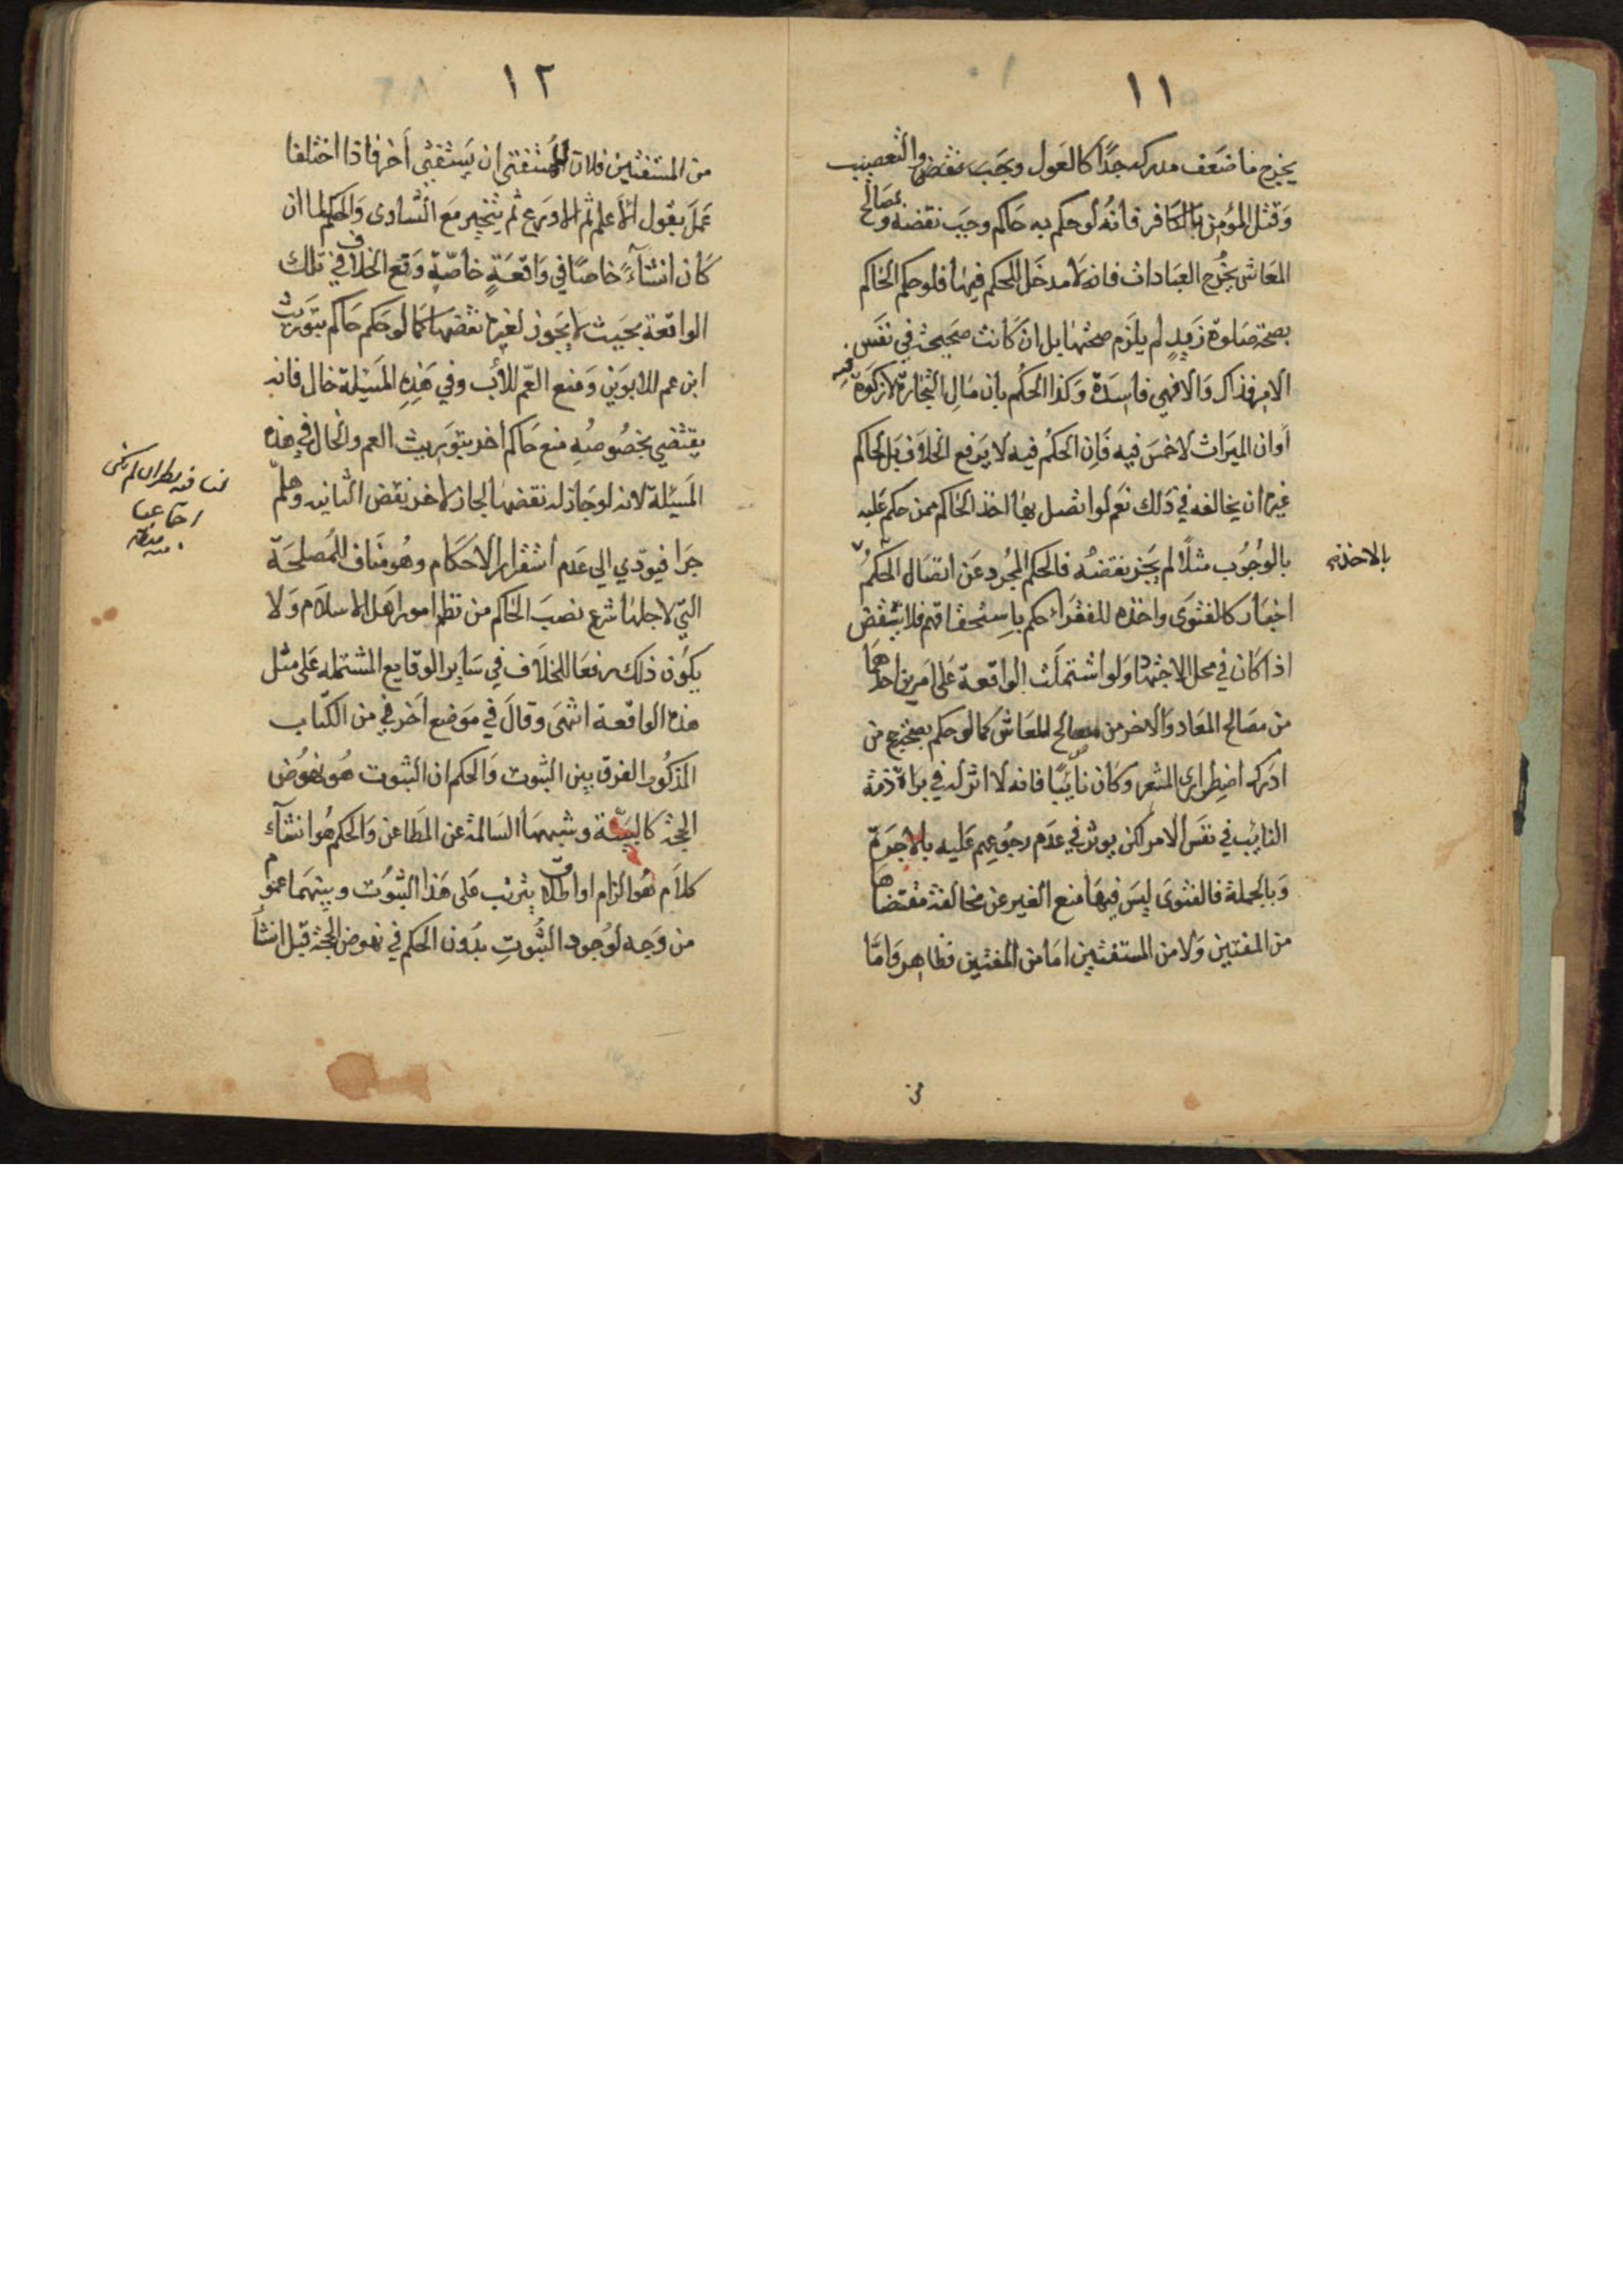 ١١
يخرج ما ضعف مدركه جدًا كالعول والتعصيب
وقتل المؤمن بالكافر فانه لو حكم به حاكم وجب نقضه ومصالح
المعاش يخرج العبادات فانه لا مدخل للحكم فيها فلو حكم الحاكم
بصحة صلوة زيد لم يلزم صحتها بل ان كانت صحيحة في نفس
الامر فذاك والا فهي فاسدة وكذا الحكم بان مال التجارة لا زكوة فيه
او ان الميراث لا خمس فيه فان الحكم فيه لا يرفع الخلاف بل لحاكم
غيره ان يخالفه في ذلك نعم لو اتصل بها اخذ الحاكم ممن حكم عليه
بالوجوب مثلًا لم يجز نقضه فالحكم المجرد عن اتصال الحكم
بالاخذ
اخبار كالفتوى واخذه للفقراء حكم باستحقاقهم فلا ينتقض
اذا كان في محل الاجتهاد ولو اشتملت الواقعة على امرين احدهما
من مصالح المعاد والاخر من مصالح المعاش كما لو حكم بصحة حج من
ادرك اضطراري المشعر وكان نايبًا فانه لا اثر له في براة ذمة
النائب في نفس الامر لكن يوثر في عدم رجوعهم عليه بالاجرة
وبالجملة فالفتوى ليس فيها منع الغير عن مخالفة مقتضاها
من المفتين ولا من المستفتين اما من المفتين فظاهر واما
من
١٢
من المستفتين فلان للمستفتي ان يستفتي آخر فاذا اختلفا
عمل بقول الاعلم ثم الاورع ثم يتخير مع التساوى والحكم لما ان
كان انشآءً خاصًا في واقعةٍ خاصّةٍ رفع الخلاف في تلك
الواقعة بحيث لا يجوز لغيره نقضها كما لو حكم حاكم بتوريث
ابن عم للابوين ومنع العم للاب وفي هذه المسئلة خال فانه
يقتضي بخصوصه منع حاكم اخر بتوريث العم والخال في هذه
المسئلة لانه لو جاز له نقضها لجاز لاخر نقض الثانيه وهلمّ
جرا فيودي الى عدم استقرار الاحكام وهو مناف للمصلحة
التي لاجلها شرع نصب الحاكم من نظم امور اهل الاسلام ولا
يكون ذلك رفعا للخلاف في ساير الوقايع المشتمله على مثل
هذه الواقعة انتهى وقال في موضع آخر في من الكتاب
المذكور الفرق بين الثبوت والحكم ان الثبوت هو نهوض
الحجة كالبيّنة وشبهها السالمة عن المطاعن والحكم هو انشآء
كلام هو الزام او اطلاق يترتب على هذا الثبوت وبينهما عموم
من وجه لوجود الثبوتِ بدون الحكم في نهوض الحجة قبل انشآ